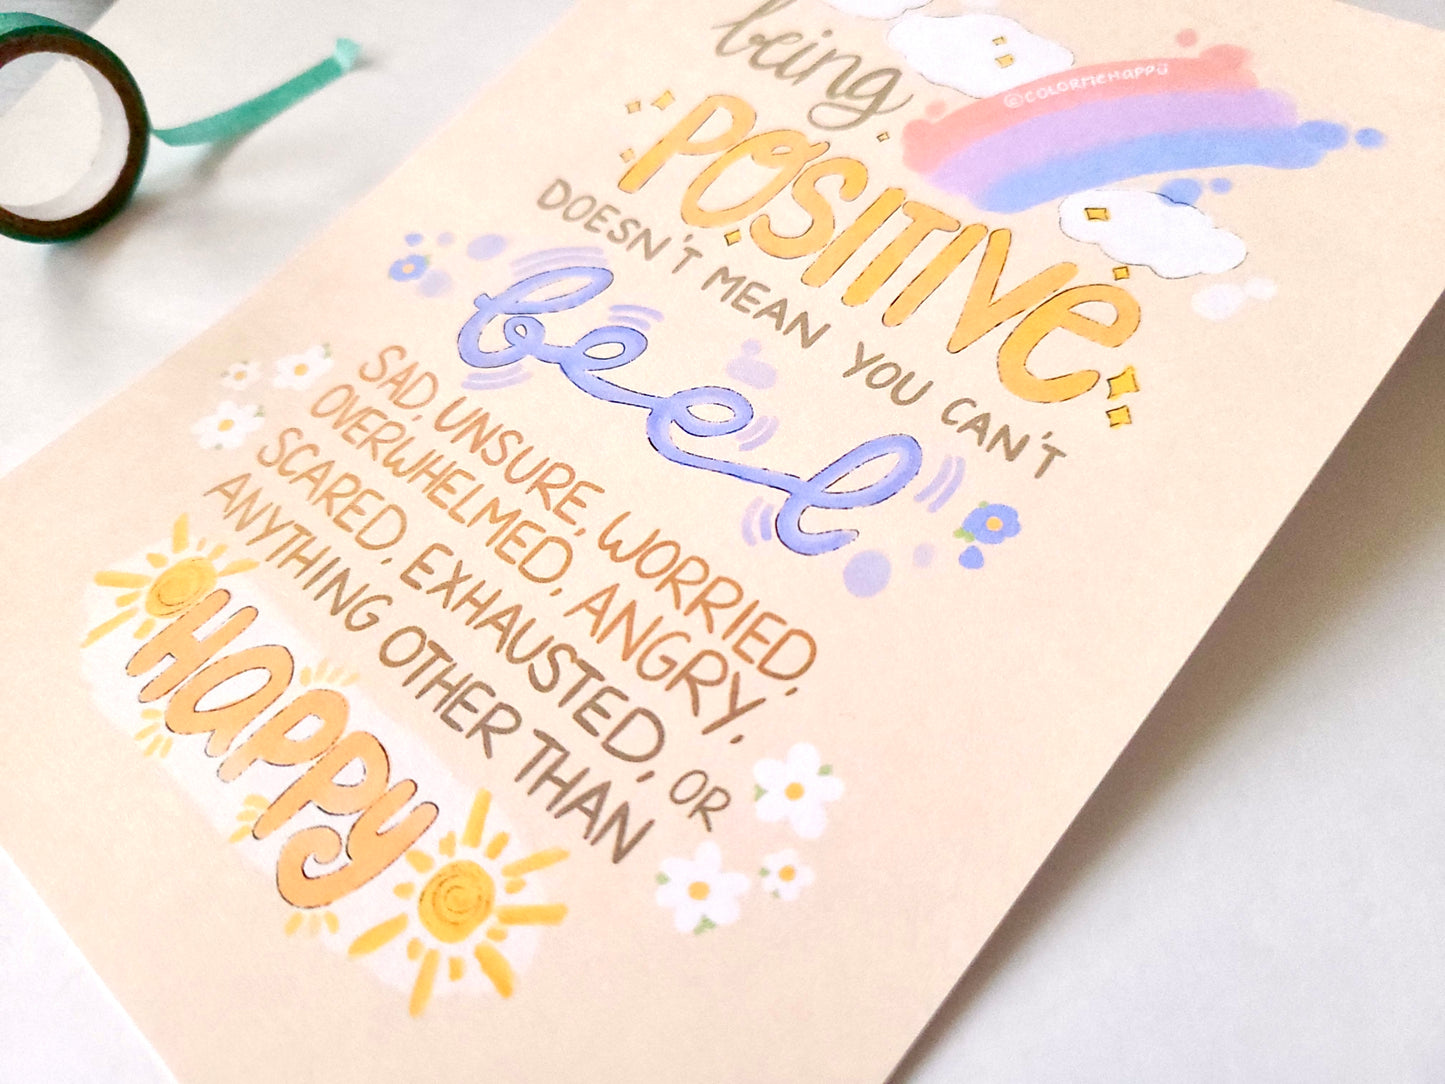 being
@COLORMEHAPPÜ
POSITIVE
DOESN'T MEAN YOU CAN'T
feel
SAD, UNSURE, WORRIED,
OVERWHELMED, ANGRY,
SCARED, EXHAUSTED, OR
ANYTHING OTHER THAN
HAPPY